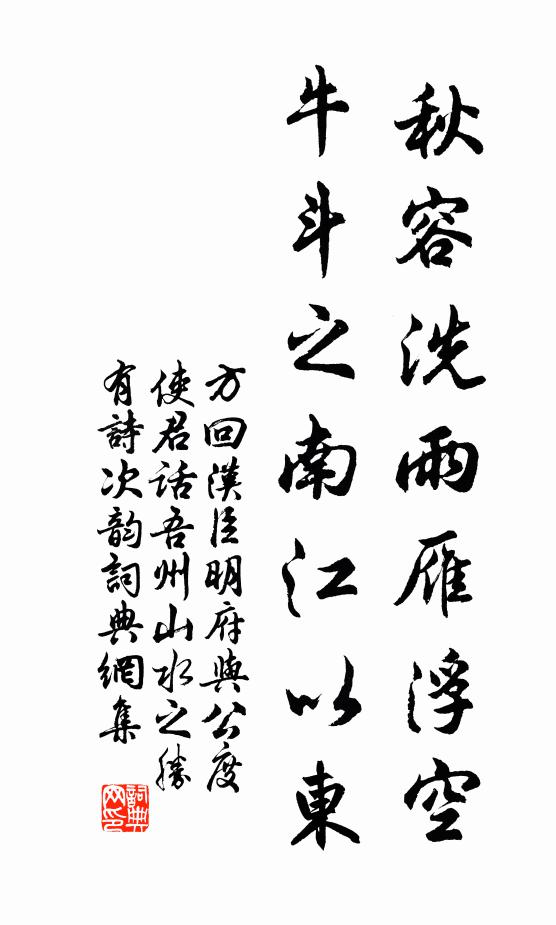 秋容洗雨雁浮空
牛斗之南江以東
方回漢臣明府與公度
使君話吾州山水之勝
有詩次韵詞典網集
詞典网印